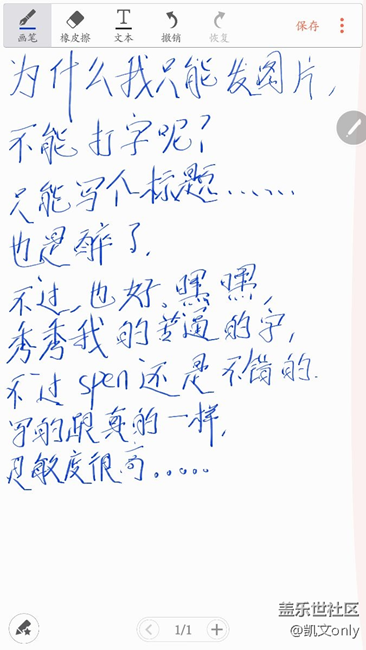 画笔 橡皮擦 文本 撤销 恢复 保存
为什么我只能发图片,
不能打字呢?
只能写个标题......
也是醉了.
不过,也好、嘿嘿,
秀秀我的普通的字,
不过spen还是不错的.
写的跟真的一样,
灵敏度很高.....
1/1
盖乐世社区
@凯文only